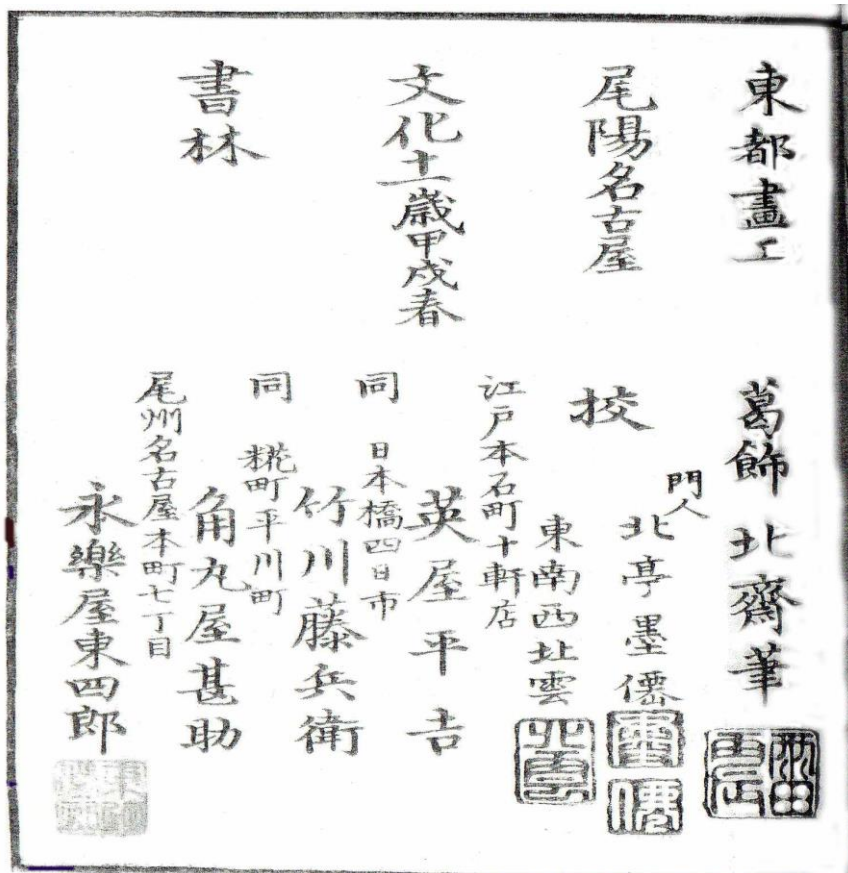 東都畫工
葛飾 北齋筆
尾陽名古屋
挍
門人
北亭墨僊
東南西北雲
文化十一歳甲戌春
書林
江戸本石町十軒店
英屋平吉
同 日本橋四日市
竹川藤兵衛
同 糀町平川町
角丸屋甚助
尾州名古屋本町七丁目
永樂屋東四郎